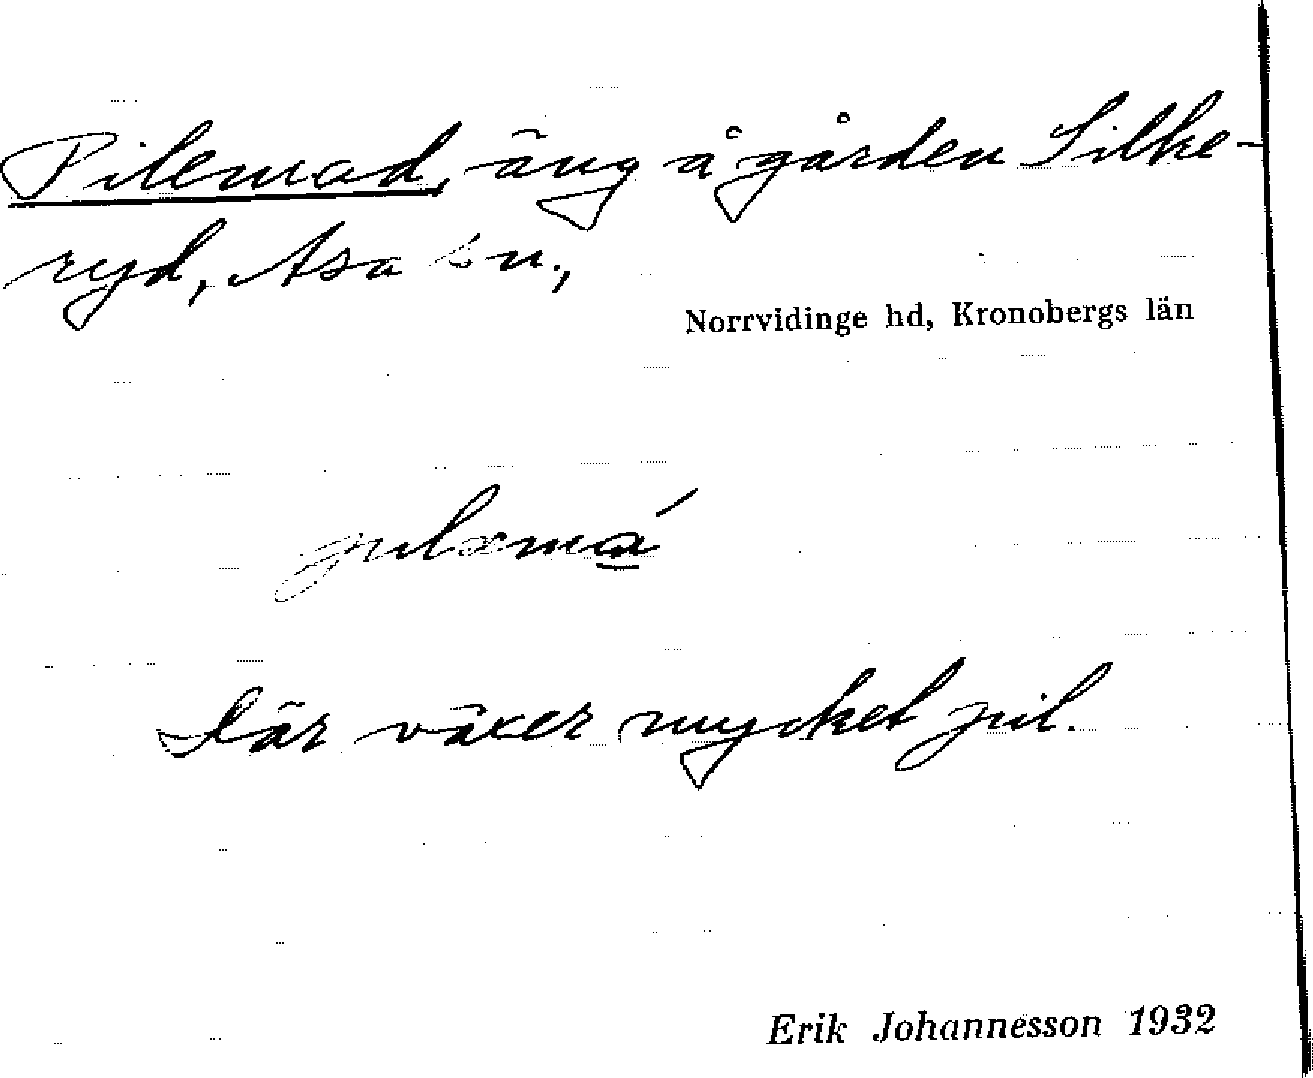 Pilemad, äng å gården Silke-
ryd, Asa sn.,
Norrvidinge hd, Kronobergs län
Där växer mycket pil.
Erik Johannesson 1932